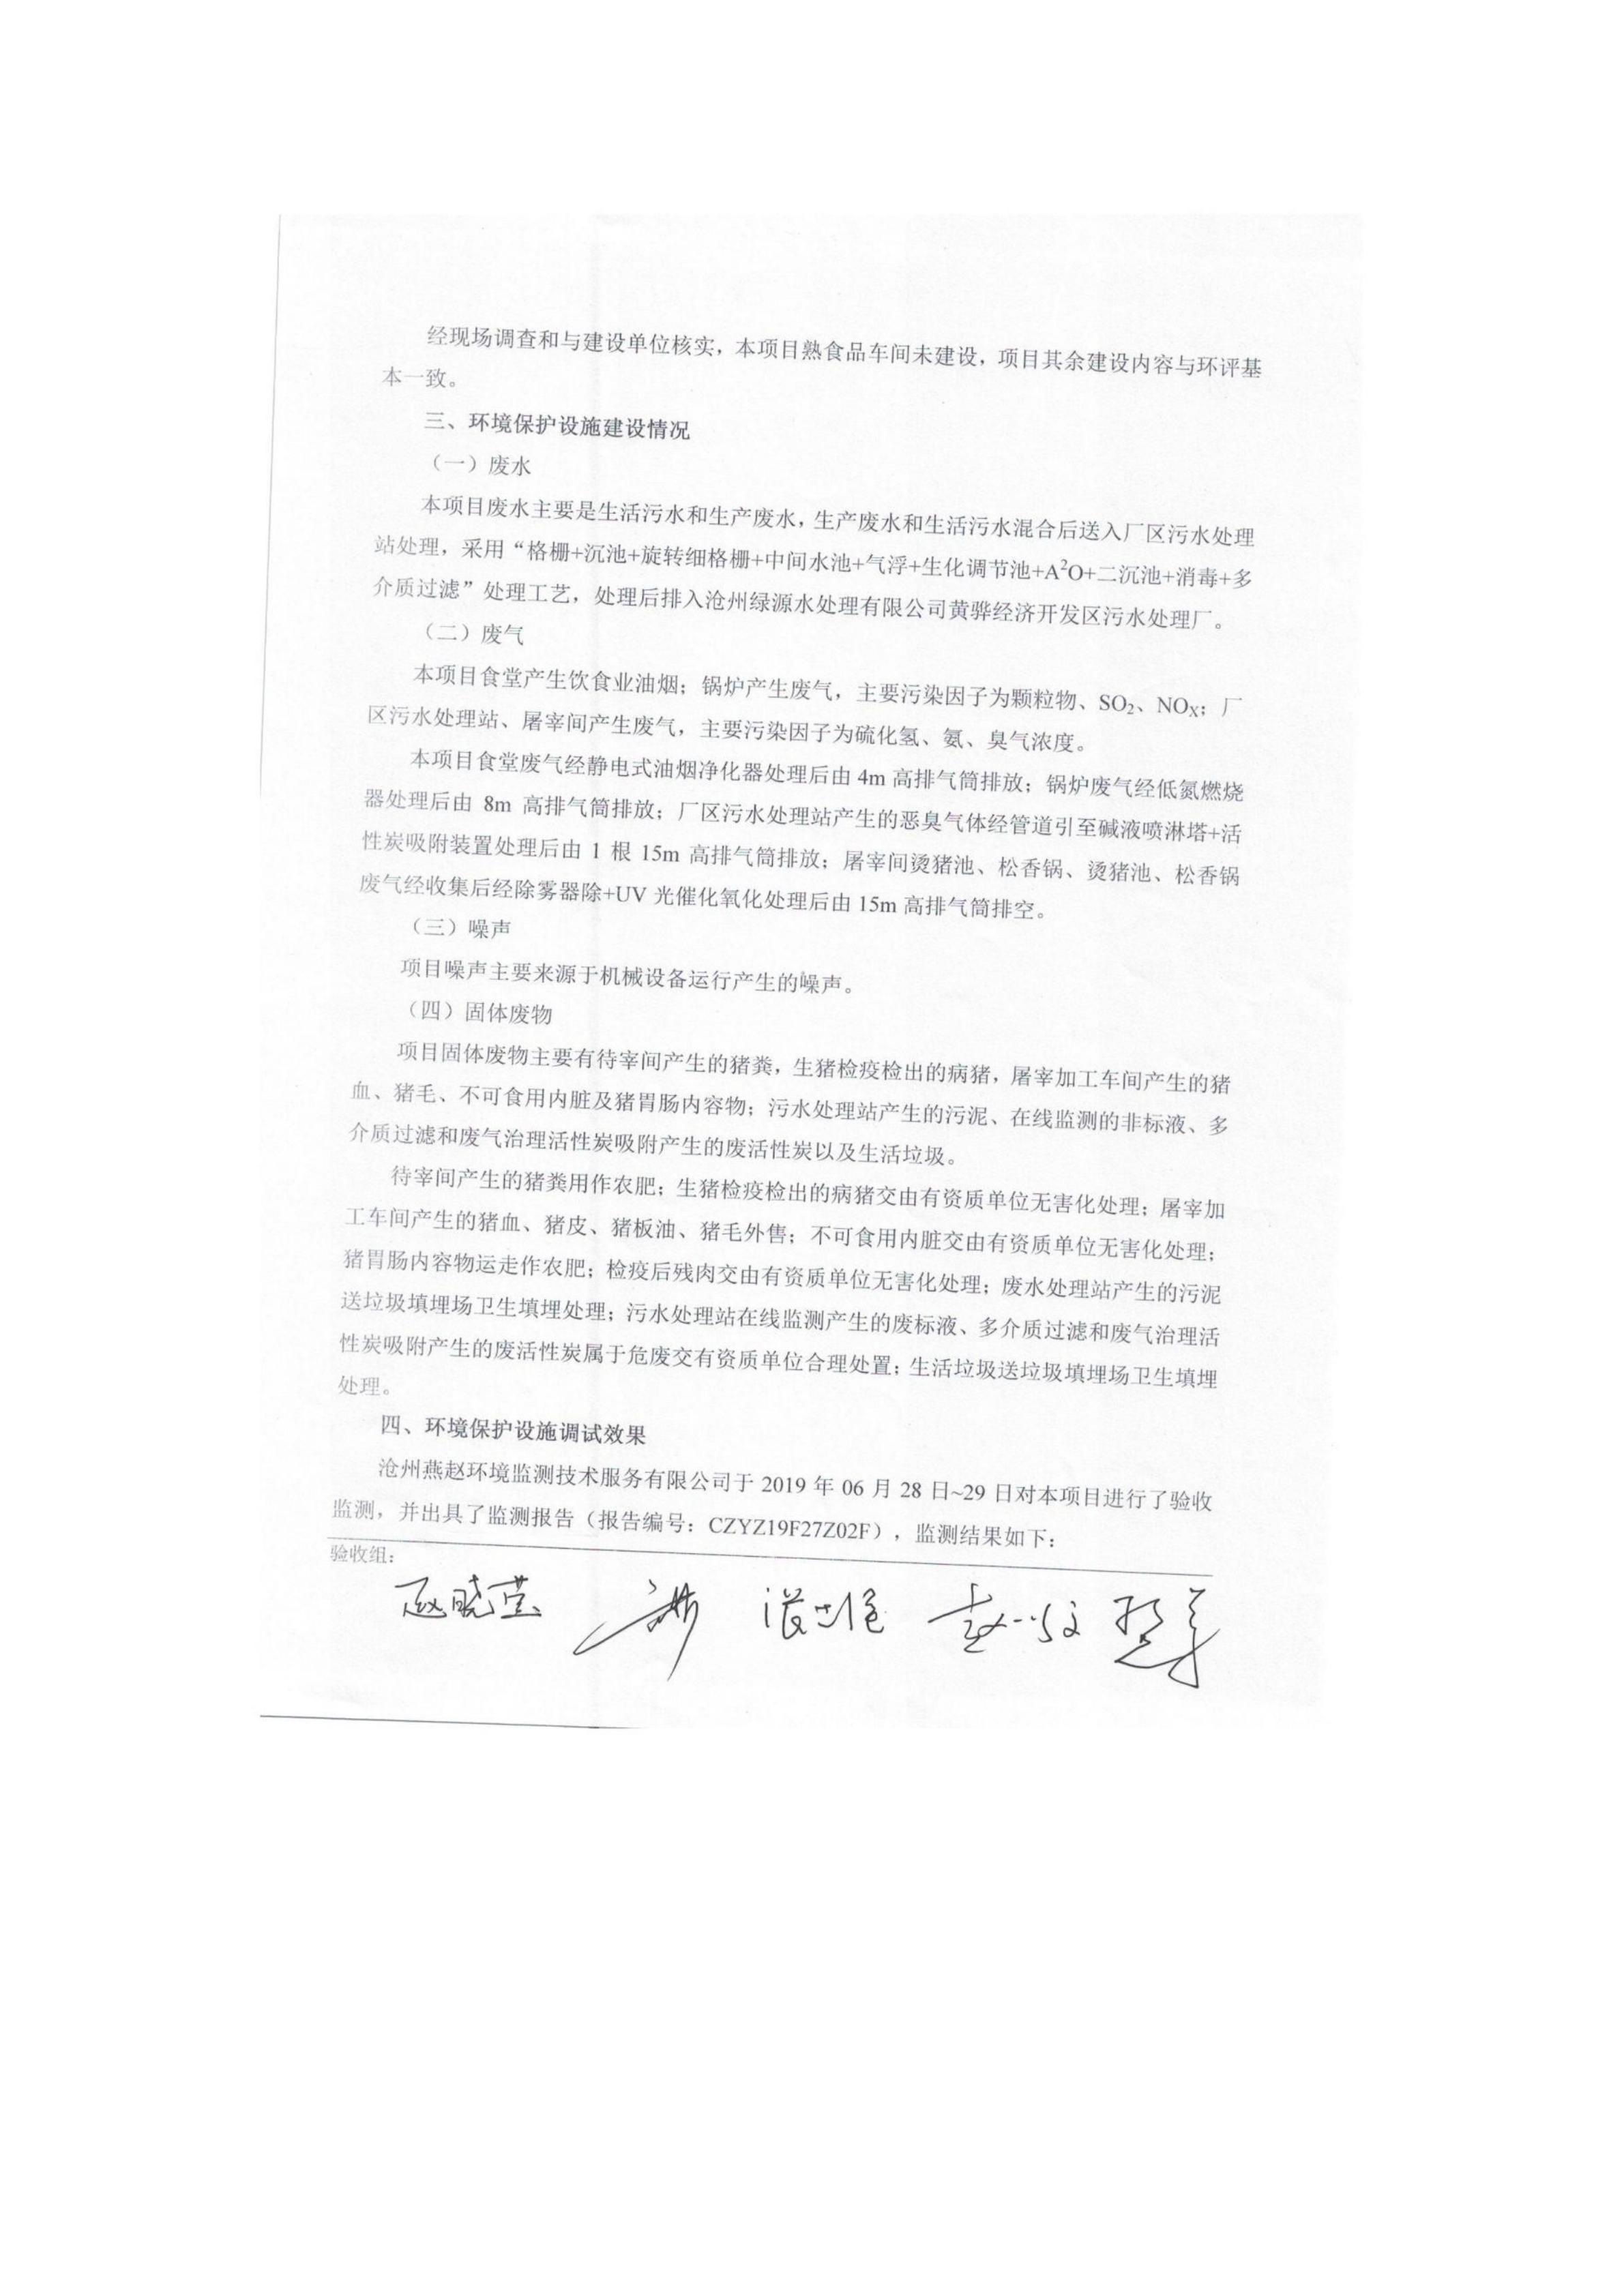 经现场调查和与建设单位核实，本项目熟食品车间未建设，项目其余建设内容与环评基
本一致。
三、环境保护设施建设情况
（一）废水
本项目废水主要是生活污水和生产废水，生产废水和生活污水混合后送入厂区污水处理
站处理，采用“格栅+沉池+旋转细格栅+中间水池+气浮+生化调节池+A²O+二沉池+消毒+多
介质过滤”处理工艺，处理后排入沧州绿源水处理有限公司黄骅经济开发区污水处理厂。
（二）废气
本项目食堂产生饮食业油烟；锅炉产生废气，主要污染因子为颗粒物、SO₂、NOX；厂
区污水处理站、屠宰间产生废气，主要污染因子为硫化氢、氨、臭气浓度。
本项目食堂废气经静电式油烟净化器处理后由 4m 高排气筒排放；锅炉废气经低氮燃烧
器处理后由 8m 高排气筒排放；厂区污水处理站产生的恶臭气体经管道引至碱液喷淋塔+活
性炭吸附装置处理后由 1 根 15m 高排气筒排放；屠宰间烫猪池、松香锅、烫猪池、松香锅
废气经收集后经除雾器除+UV 光催化氧化处理后由 15m 高排气筒排空。
（三）噪声
项目噪声主要来源于机械设备运行产生的噪声。
（四）固体废物
项目固体废物主要有待宰间产生的猪粪，生猪检疫检出的病猪，屠宰加工车间产生的猪
血、猪毛、不可食用内脏及猪胃肠内容物；污水处理站产生的污泥、在线监测的非标液、多
介质过滤和废气治理活性炭吸附产生的废活性炭以及生活垃圾。
待宰间产生的猪粪用作农肥；生猪检疫检出的病猪交由有资质单位无害化处理；屠宰加
工车间产生的猪血、猪皮、猪板油、猪毛外售；不可食用内脏交由有资质单位无害化处理；
猪胃肠内容物运走作农肥；检疫后残肉交由有资质单位无害化处理；废水处理站产生的污泥
送垃圾填埋场卫生填埋处理；污水处理站在线监测产生的废标液、多介质过滤和废气治理活
性炭吸附产生的废活性炭属于危废交有资质单位合理处置；生活垃圾送垃圾填埋场卫生填埋
处理。
四、环境保护设施调试效果
沧州燕赵环境监测技术服务有限公司于 2019 年 06 月 28 日~29 日对本项目进行了验收
监测，并出具了监测报告（报告编号：CZYZ19F27Z02F），监测结果如下：
验收组：
赵晓莹